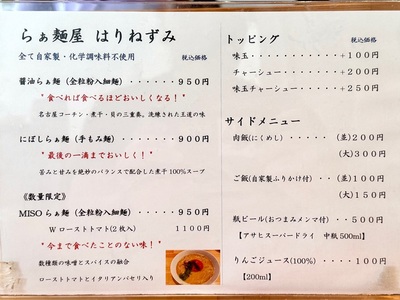 らぁ麺屋 はりねずみ
全て自家製・化学調味料不使用 税込価格
醤油らぁ麺（全粒粉入細麺）・・・・・950円
"食べれば食べるほどおいしくなる！"
名古屋コーチン・煮干・貝の三重奏。洗練された王道の味
にぼしらぁ麺（手もみ麺）・・・・・900円
"最後の一滴までおいしく！"
苦みと甘みを絶妙のバランスで配合した煮干100%スープ
《数量限定》
MISOらぁ麺（全粒粉入細麺）・・・・・950円
Wローストトマト(2枚入) 1100円
"今まで食べたことのない味！"
数種類の味噌とスパイスの融合
ローストトマトとイタリアンパセリ入り
トッピング 税込価格
味玉・・・・・・・・・・・・+100円
チャーシュー・・・・・・・・+250円
味玉チャーシュー・・・・・・+250円
サイドメニュー
肉飯(にくめし)・・・・(並)200円
(大)300円
ご飯(自家製ふりかけ付)・・(並)100円
(大)150円
瓶ビール(おつまみメンマ付)・・・500円
【アサヒスーパードライ 中瓶500ml】
りんごジュース(100%)・・・・100円
【200ml】